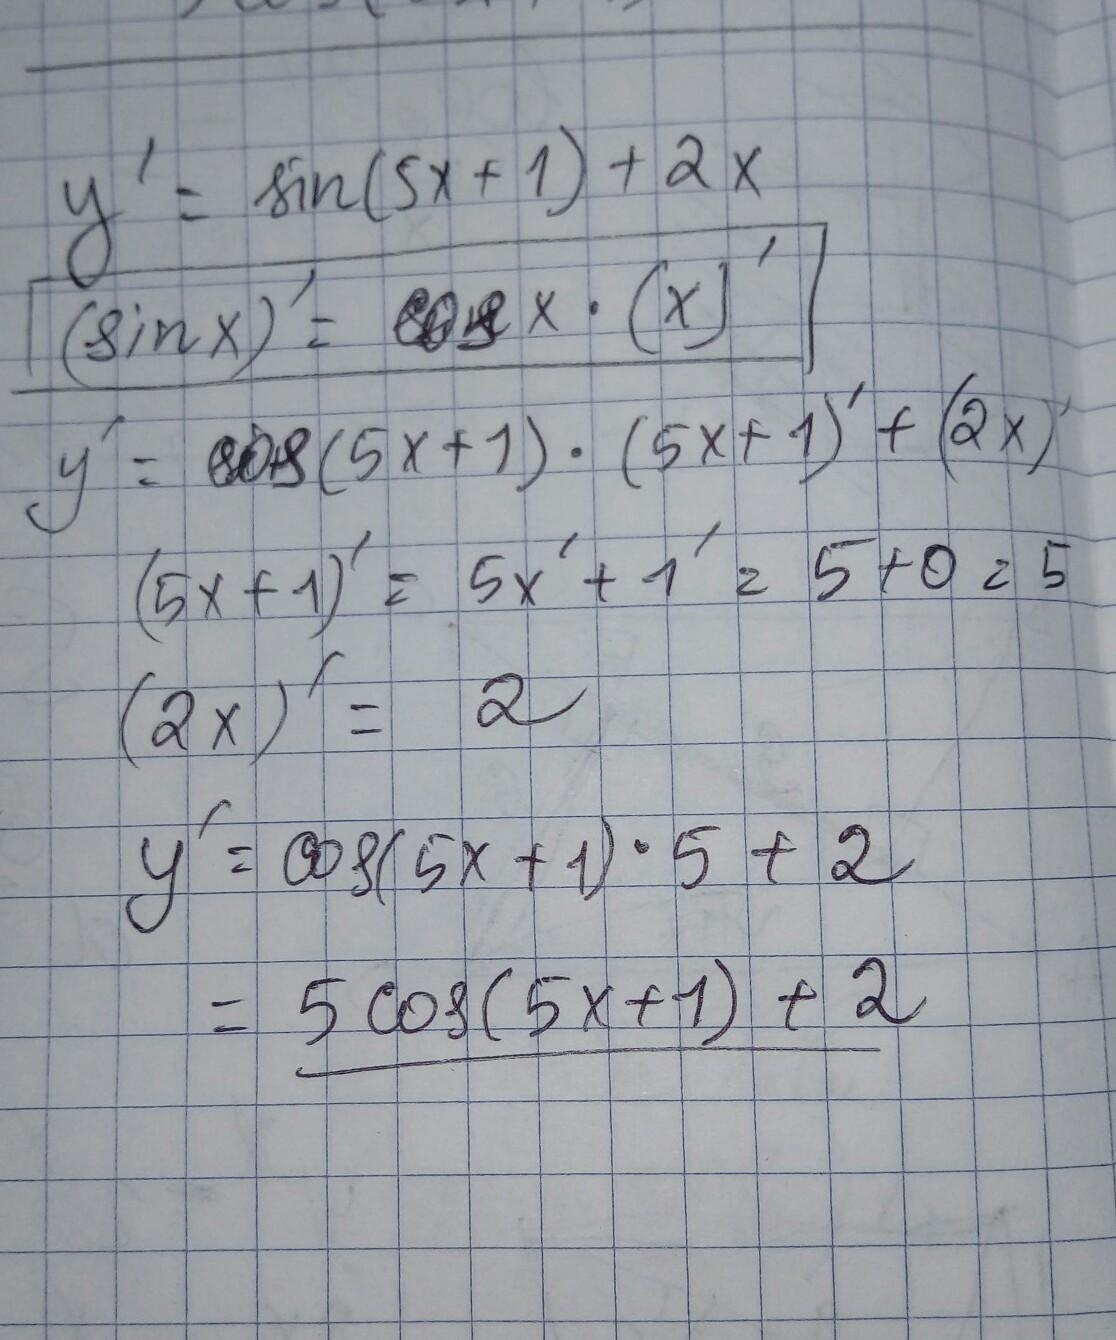 y' = sin(5x+1)+2x
(sinx)' = cosx·(x)'
y' = cos(5x+1)·(5x+1)'+(2x)'
(5x+1)' = 5x'+1' = 5+0 = 5
(2x)' = 2
y' = cos(5x+1)·5+2
= 5cos(5x+1)+2